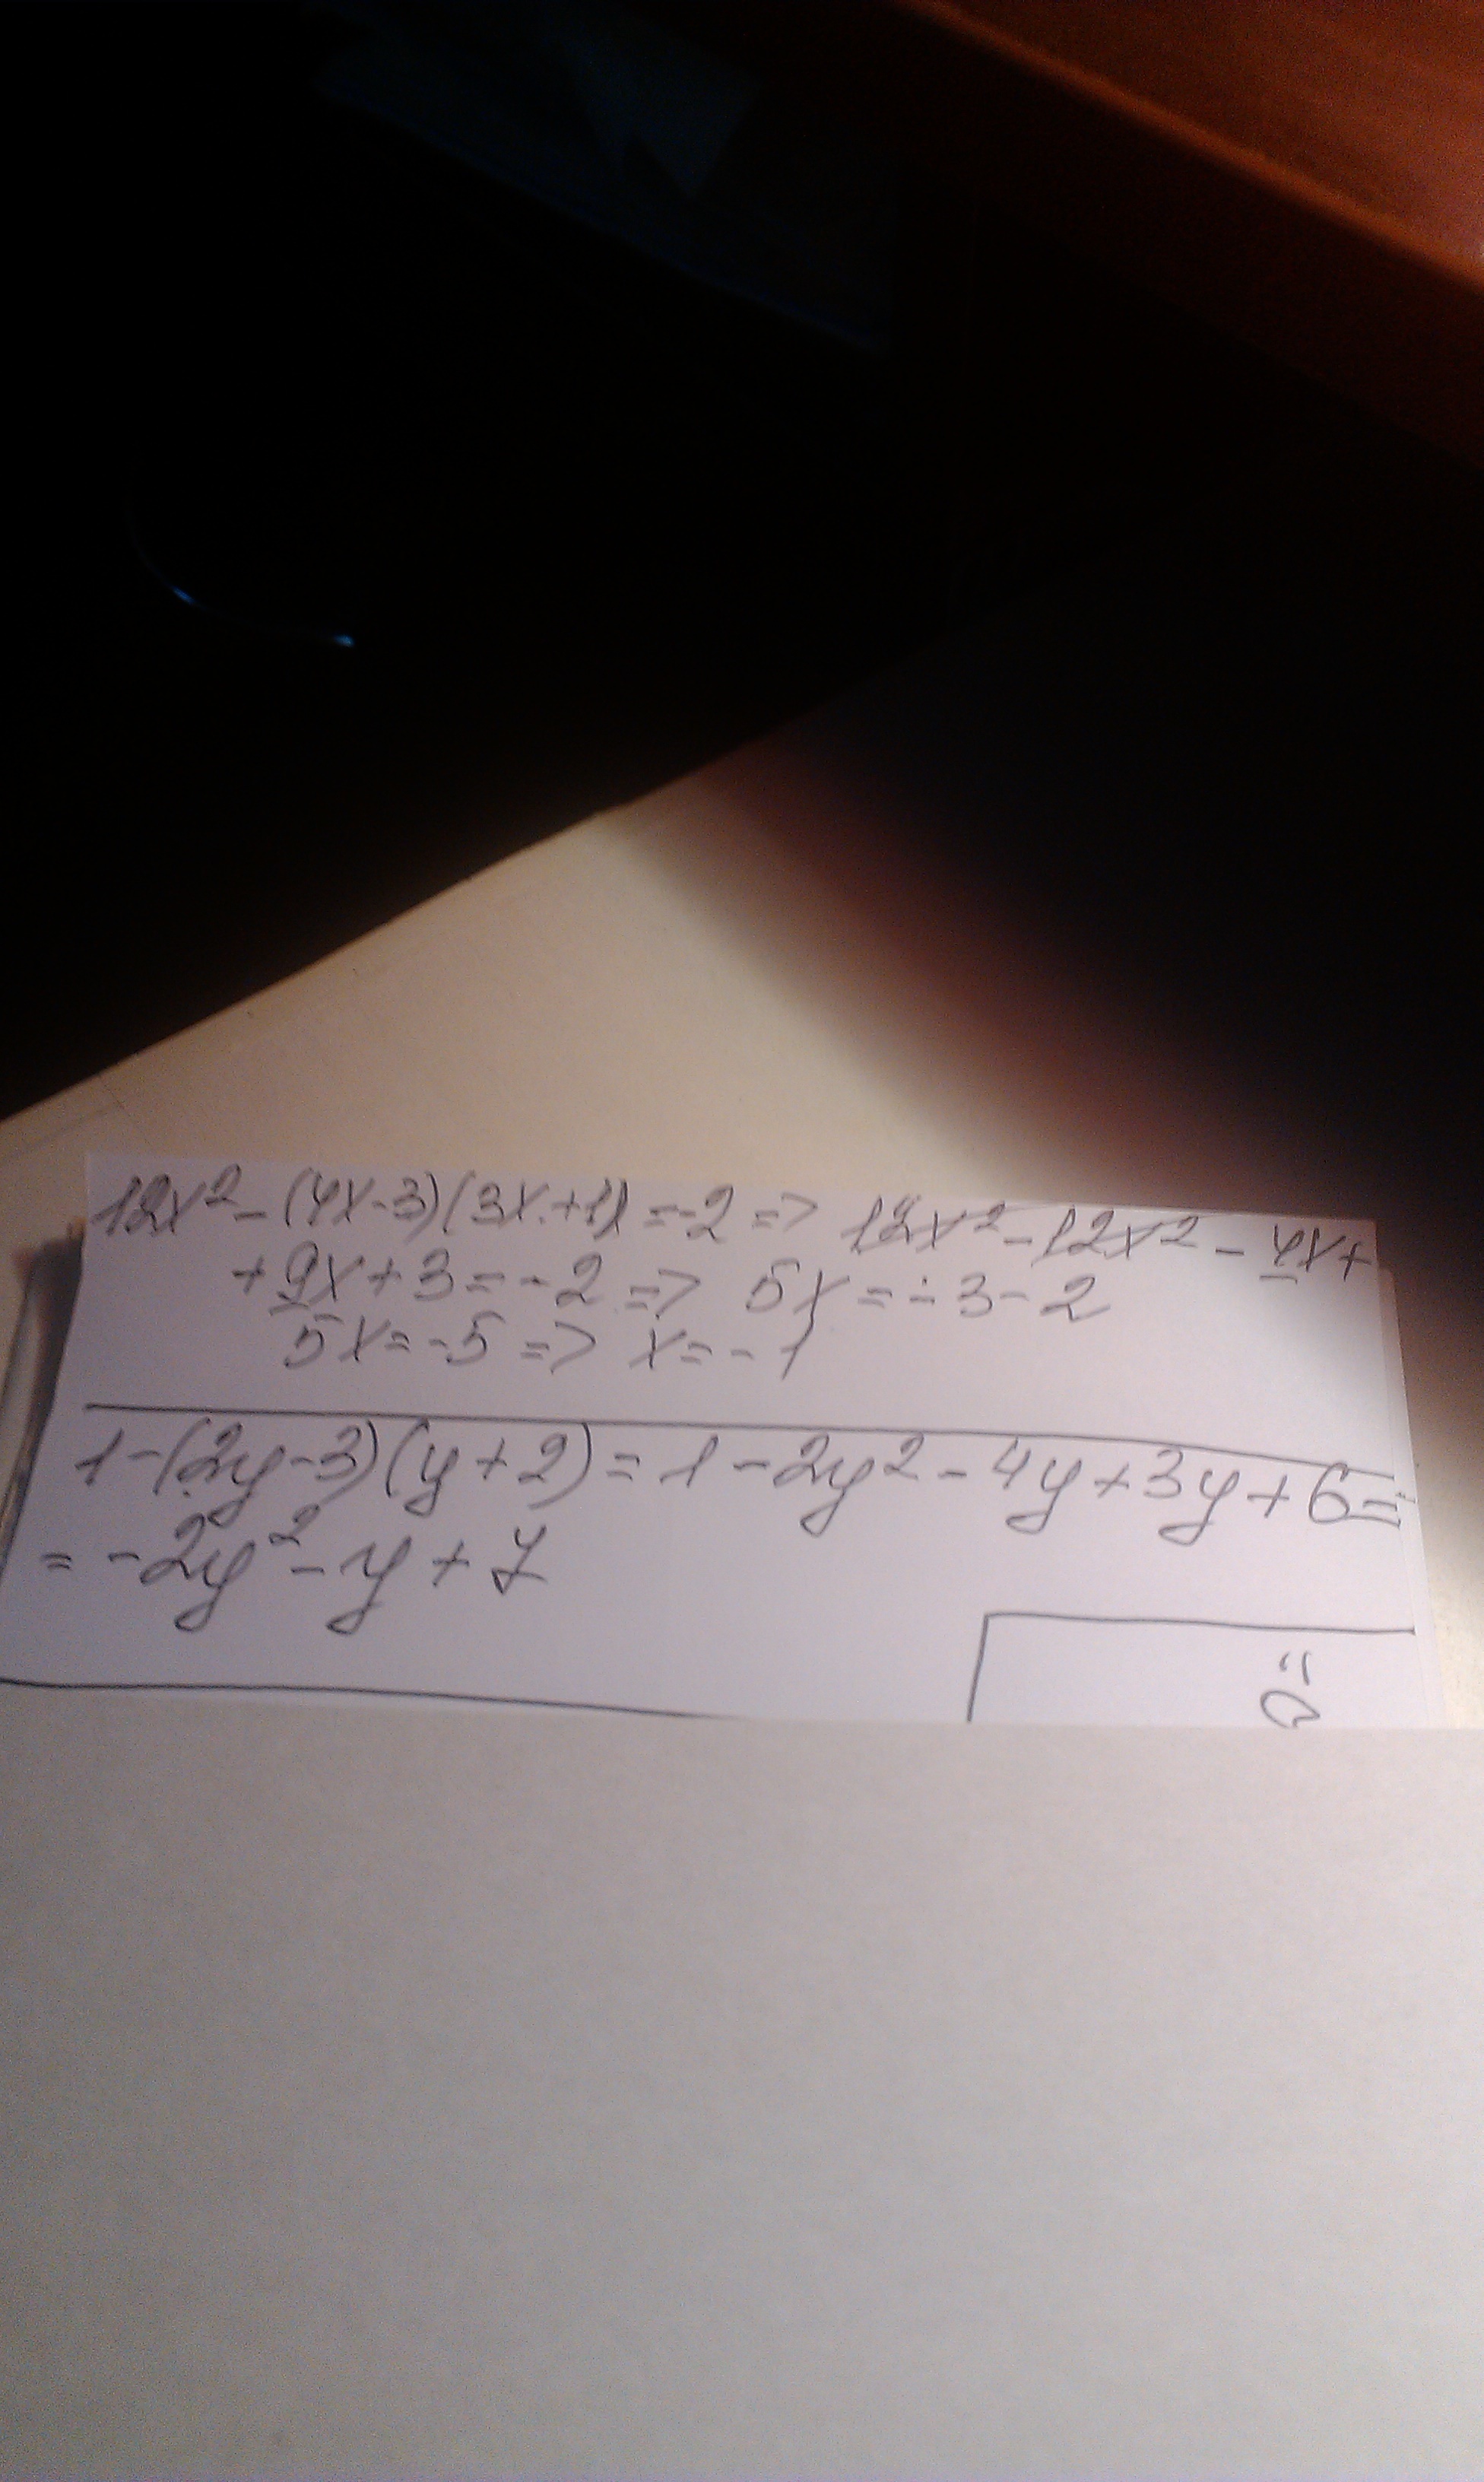 12x² - (4x-3)(3x+1) = -2 => 12x² - 12x² - 4x +
+ 9x + 3 = -2 => 5x = -3 - 2
5x = -5 => x = -1
1 - (2y-3)(y+2) = 1 - 2y² - 4y + 3y + 6 =
= -2y² - y + 7